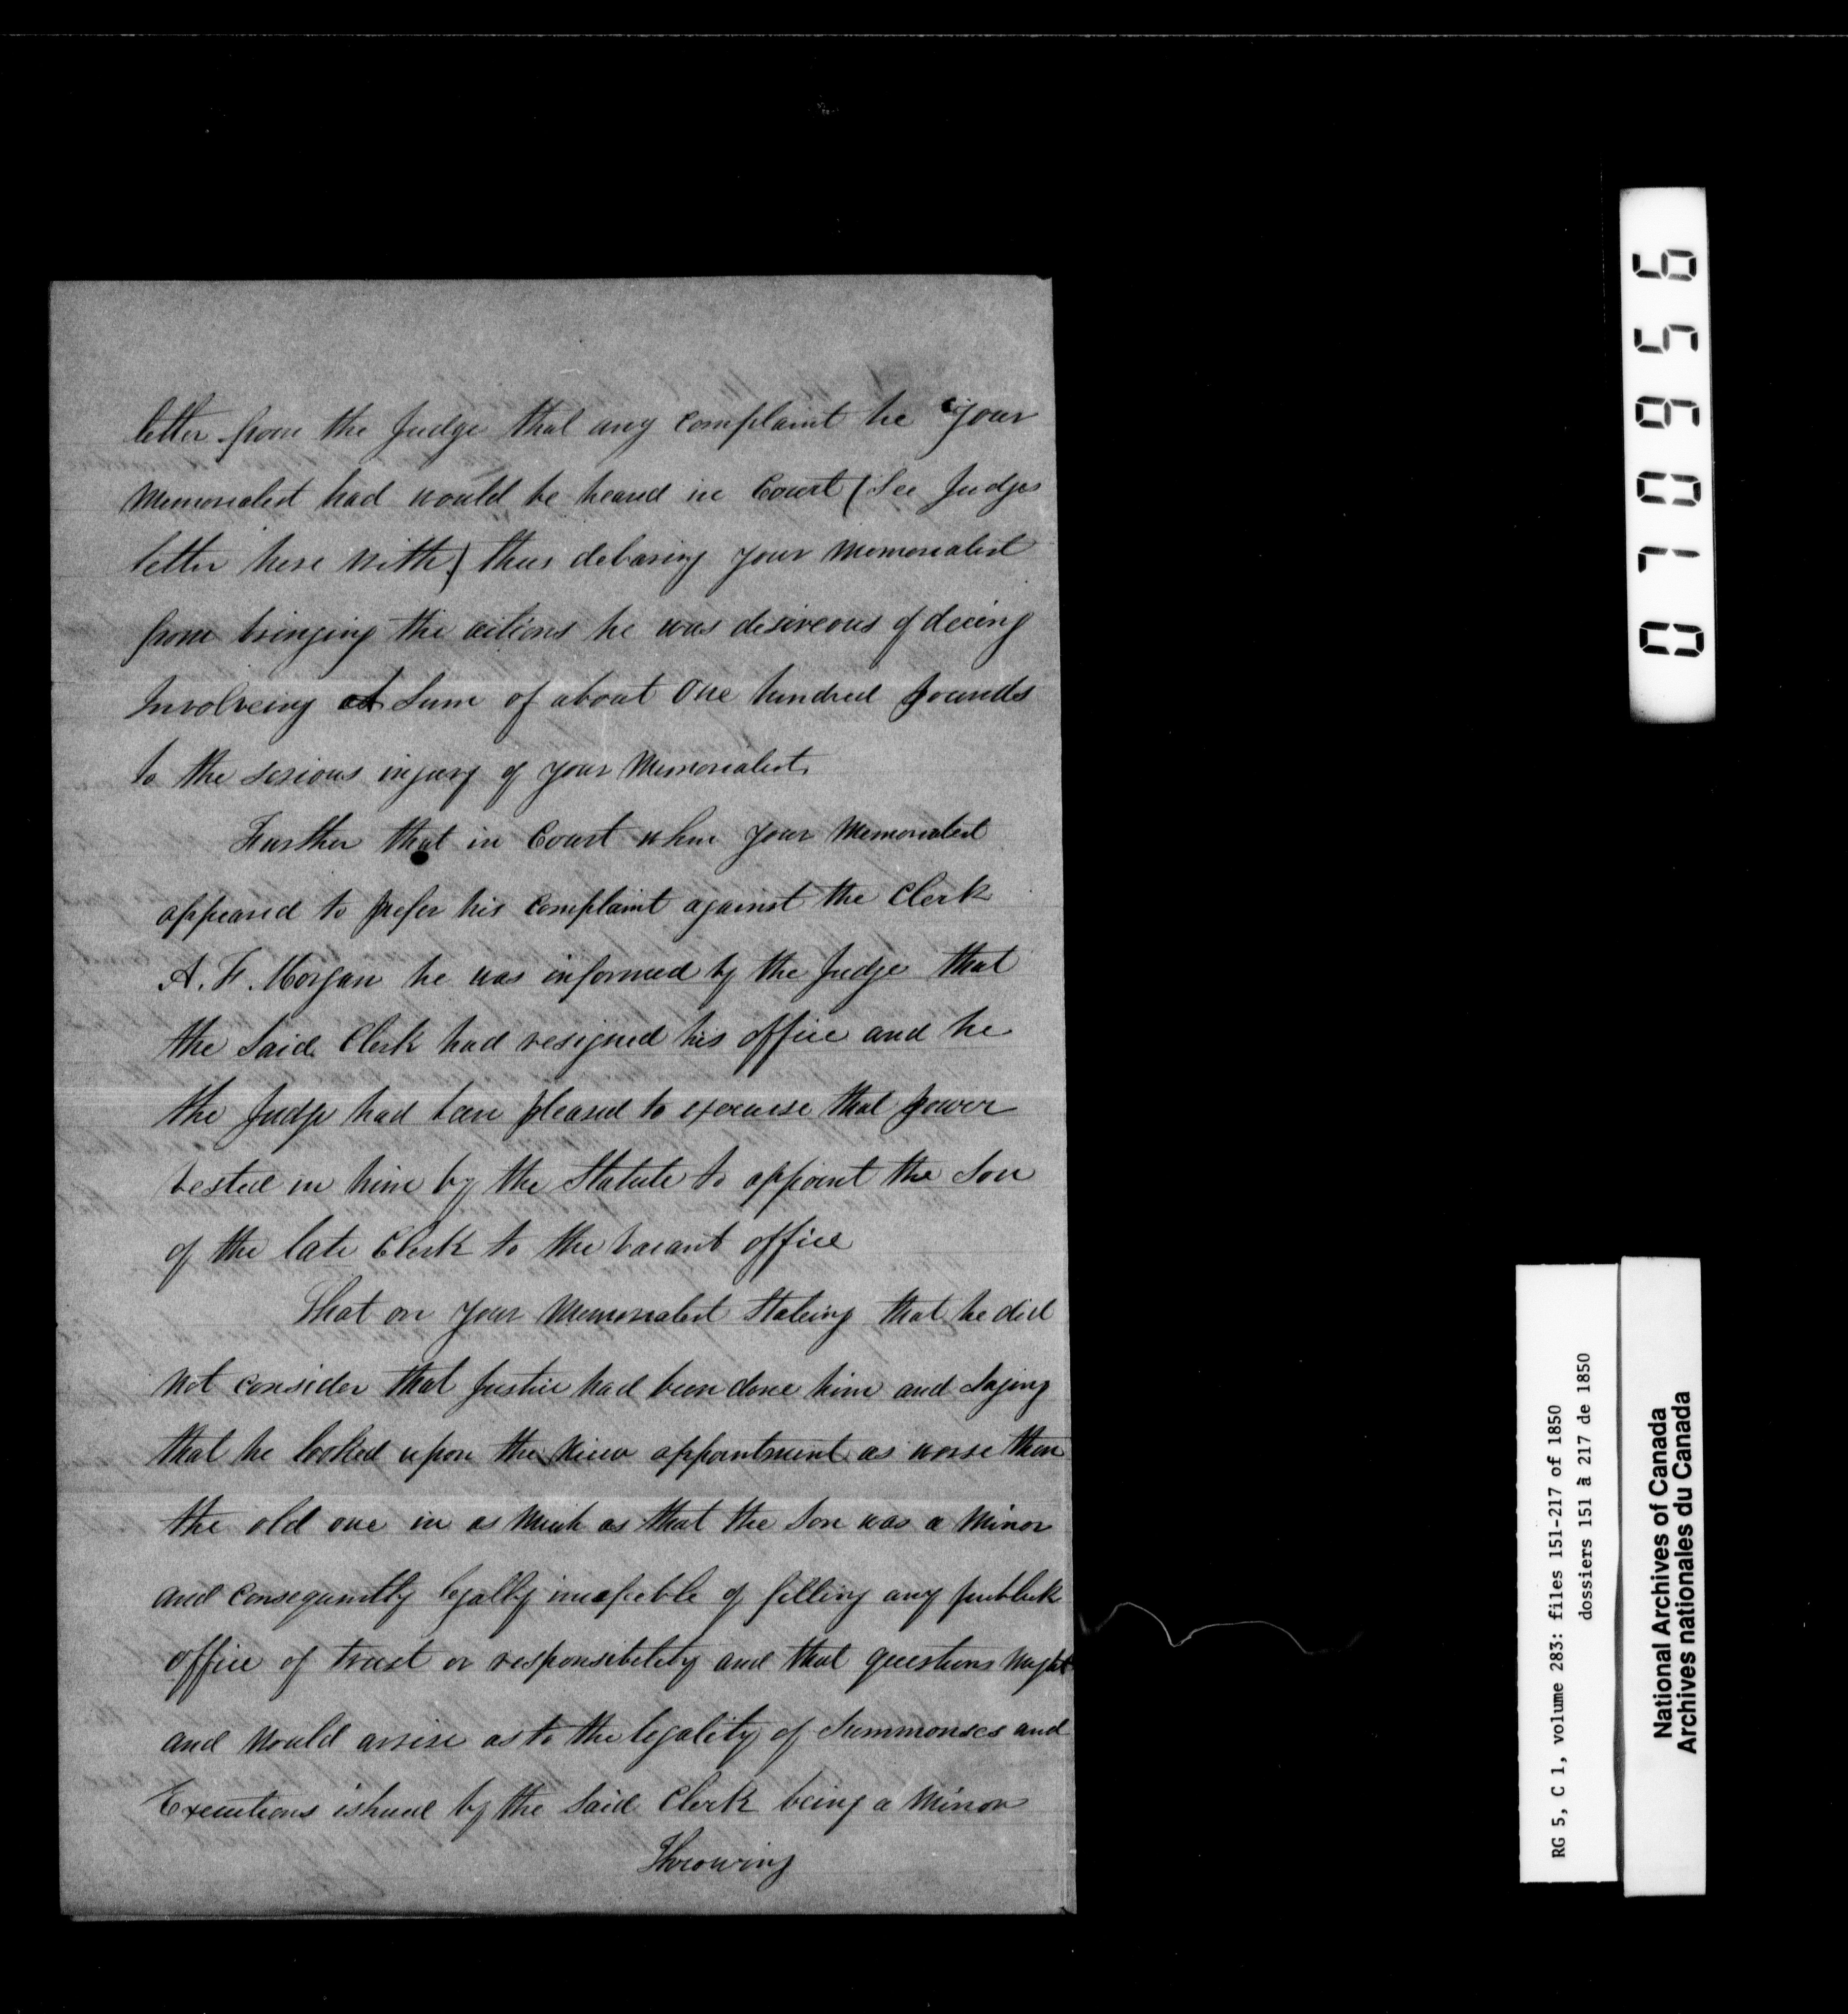 letter from the Judge that any complaint he your
Memorialist had would be heard in Court (See Judges
letter here with) thus debaring your memorialist
from bringing the actions he was desireous of doeing
Involveing a Sum of about One hundred pounds
to the serious injury of your Memorialist
Further that in Court when your Memorialist
appeared to prefer his complaint against the Clerk
A. F. Morgan he was informed by the Judge that
the Said Clerk had resigned his office and he
the Judge had been pleased to exercise that power
vested in him by the Statute to appoint the Son
of the late Clerk to the vacant office
That on your Memorialist Stateing that he did
not consider that Justice had been done him and Saying
that he looked upon the New appointment as worse then
the old one in as Much as that the Son was a Minor
and Consequintly legally incapeble of filling any publick
office of trust or responsibility and that questions Might
and Would arrise as to the legality of Summonses and
Executions ishued by the Said Clerk being a Minor
Throwing
070956
RG 5, C 1, volume 283: files 151-217 of 1850
dossiers 151 à 217 de 1850
National Archives of Canada
Archives nationales du Canada